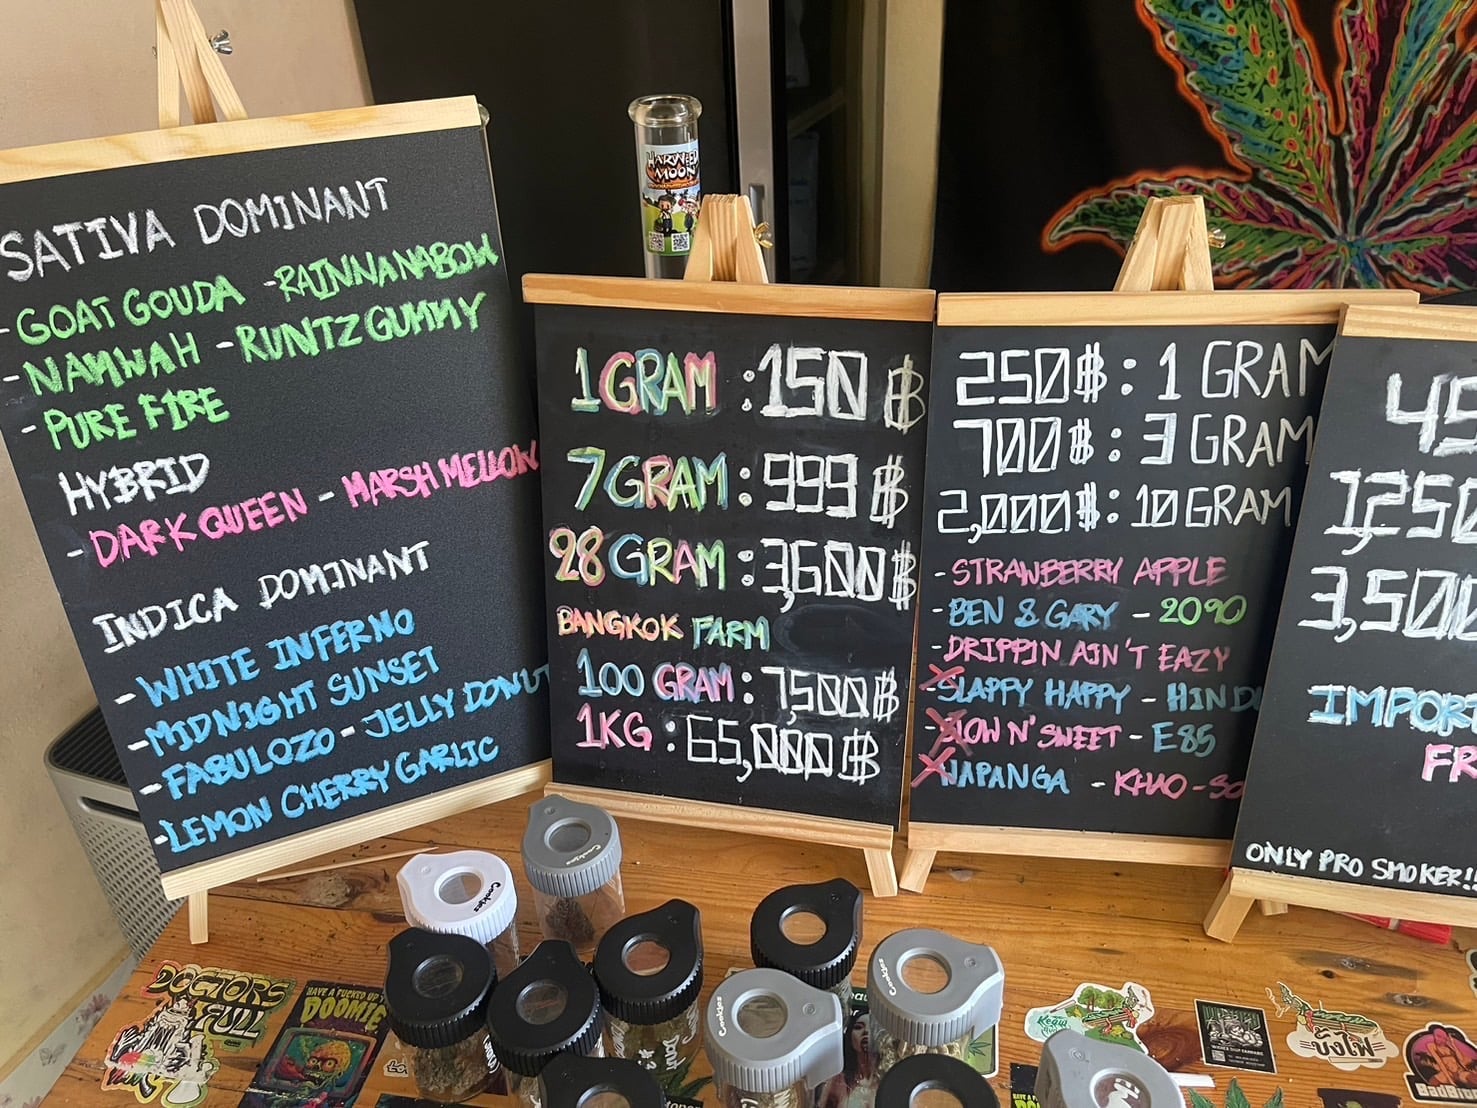 SATIVA DOMINANT
- GOAT GOUDA - RAINNANABOW
- NAMWAH - RUNTZ GUMMY
- PURE FIRE
HYBRID
- DARK QUEEN - MARSHMELLOW
INDICA DOMINANT
- WHITE INFERNO
- MIDNIGHT SUNSET
- FABULOZO - JELLY DONUT
- LEMON CHERRY GARLIC
HARWEED
MOON
1 GRAM : 150 ฿
7 GRAM : 999 ฿
28 GRAM : 3,600 ฿
BANGKOK FARM
100 GRAM : 7,500 ฿
1KG : 65,000 ฿
250฿ : 1 GRAM
700฿ : 3 GRAM
2,000฿ : 10 GRAM
- STRAWBERRY APPLE
- BEN & GARY - 2090
- DRIPPIN AIN'T EAZY
- SLAPPY HAPPY - HINDU
- SLOW N' SWEET - E85
- NAPANGA - KHAO-SO
45
1,250
3,500
IMPOR
FR
ONLY PRO SMOKER!!
Cookies
Cookies
Cookies
Cookies
DOCTORS
FULL
HAVE A FUCKED UP
DOOMIE
บังไฟ